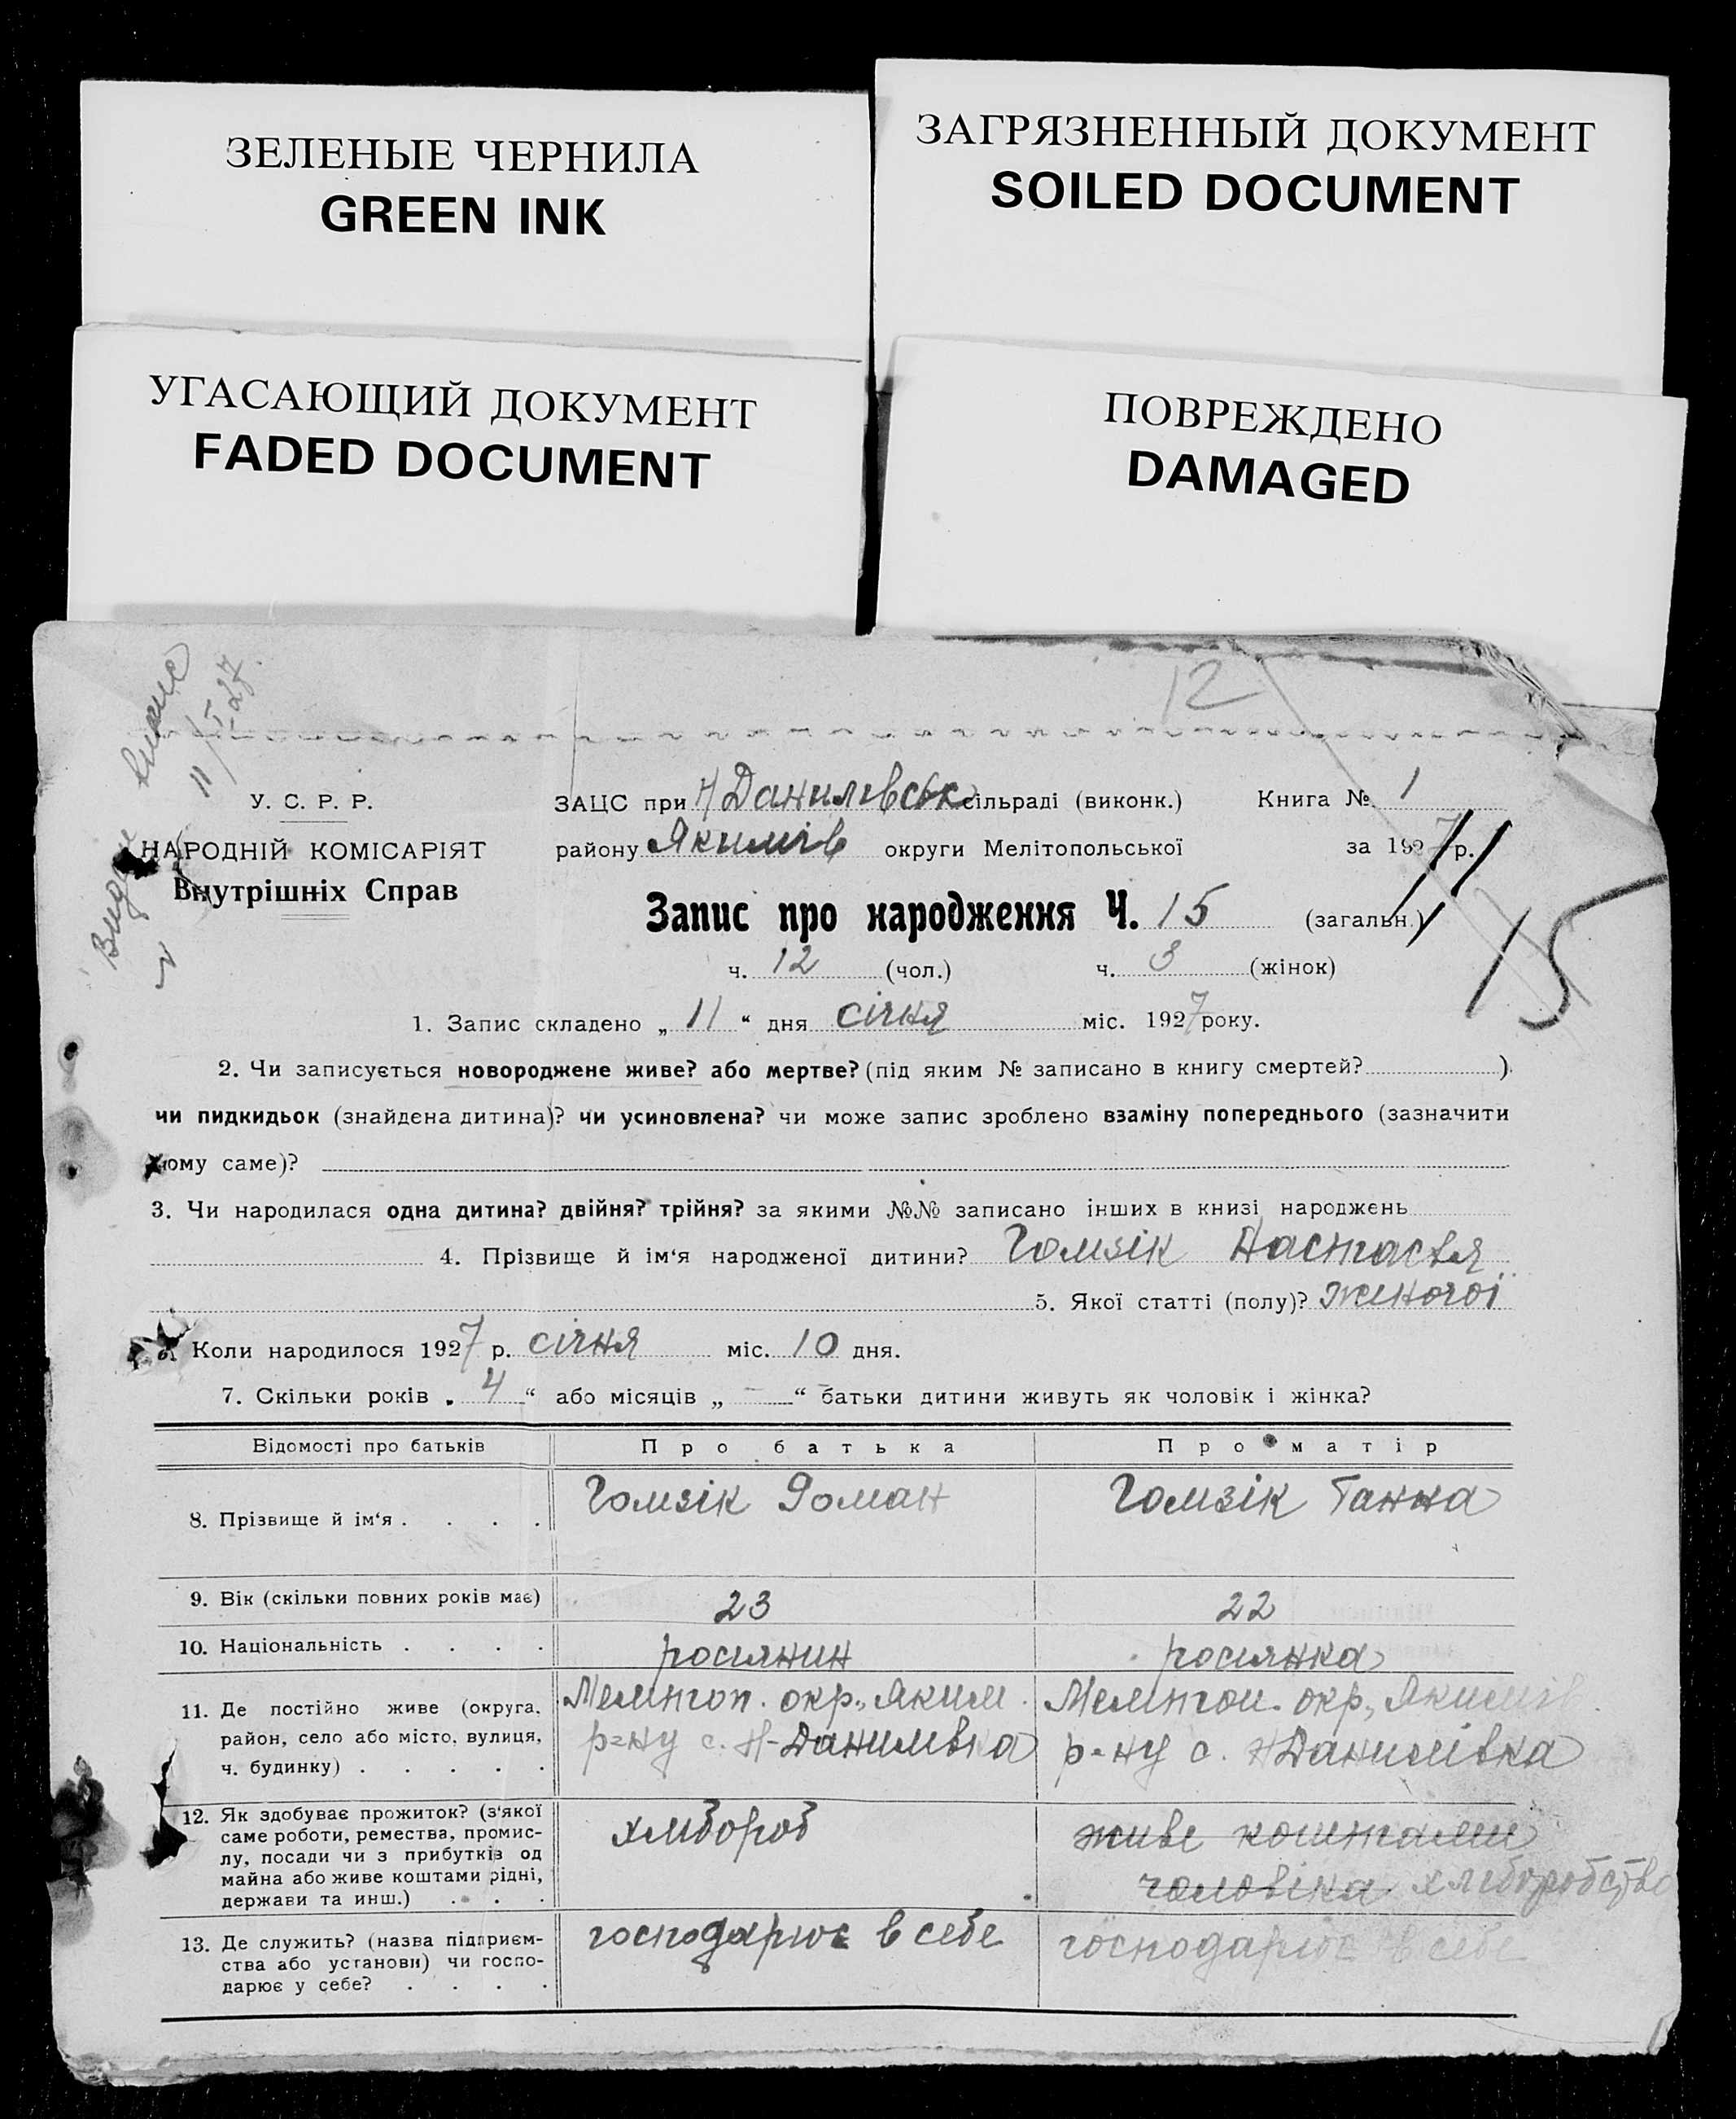 ЗЕЛЕНЫЕ ЧЕРНИЛА
GREEN INK
ЗАГРЯЗНЕННЫЙ ДОКУМЕНТ
SOILED DOCUMENT
УГАСАЮЩИЙ ДОКУМЕНТ
FADED DOCUMENT
ПОВРЕЖДЕНО
DAMAGED
12
11/5-27
У. С. Р. Р.
НАРОДНІЙ КОМІСАРІЯТ
Внутрішніх Справ
ЗАЦС при Н Данилівськ сільраді (виконк.)
району Якимів округи Мелітопольської
Книга № 1
за 1927 р.
Запис про народження Ч. 15 (загальн.)
15
ч. 12 (чол.) ч. 3 (жінок)
1. Запис складено „ 11 “ дня січня міс. 1927 року.
2. Чи записується новороджене живе? або мертве? (під яким № записано в книгу смертей? )
чи пидкидьок (знайдена дитина)? чи усиновлена? чи може запис зроблено взаміну попереднього (зазначити
чому саме)?
3. Чи народилася одна дитина? двійня? трійня? за якими №№ записано інших в книзі народжень
4. Прізвище й ім‘я народженої дитини? Гомзік Настасья
5. Якої статті (полу)? жиночої
Коли народилося 1927 р. січня міс. 10 дня.
7. Скільки років „ 4 “ або місяців „ — “ батьки дитини живуть як чоловік і жінка?
Відомості про батьків Про батька Про матір
8. Прізвище й ім‘я . . . . Гомзік Роман Гомзік Ганна
9. Вік (скільки повних років має) 23 22
10. Національність . . . . росиянин росиянка
11. Де постійно живе (округа, район, село або місто, вулиця, ч. будинку) . . . . .
Мелитоп. окр., Яким.
р-ну с. Н-Данилівка
Мелитоп. окр., Якимів.
р-ну с. Н Данилівка
12. Як здобуває прожиток? (з‘якої
саме роботи, ремества, промис-
лу, посади чи з прибутків од
майна або живе коштами рідні,
держави та инш.) . . .
хлібороб
живе коштами
чоловіка хліборобство
13. Де служить? (назва підприєм-
ства або установи) чи госпо-
дарює у себе? . . . .
господарює в себе
господарює в себе